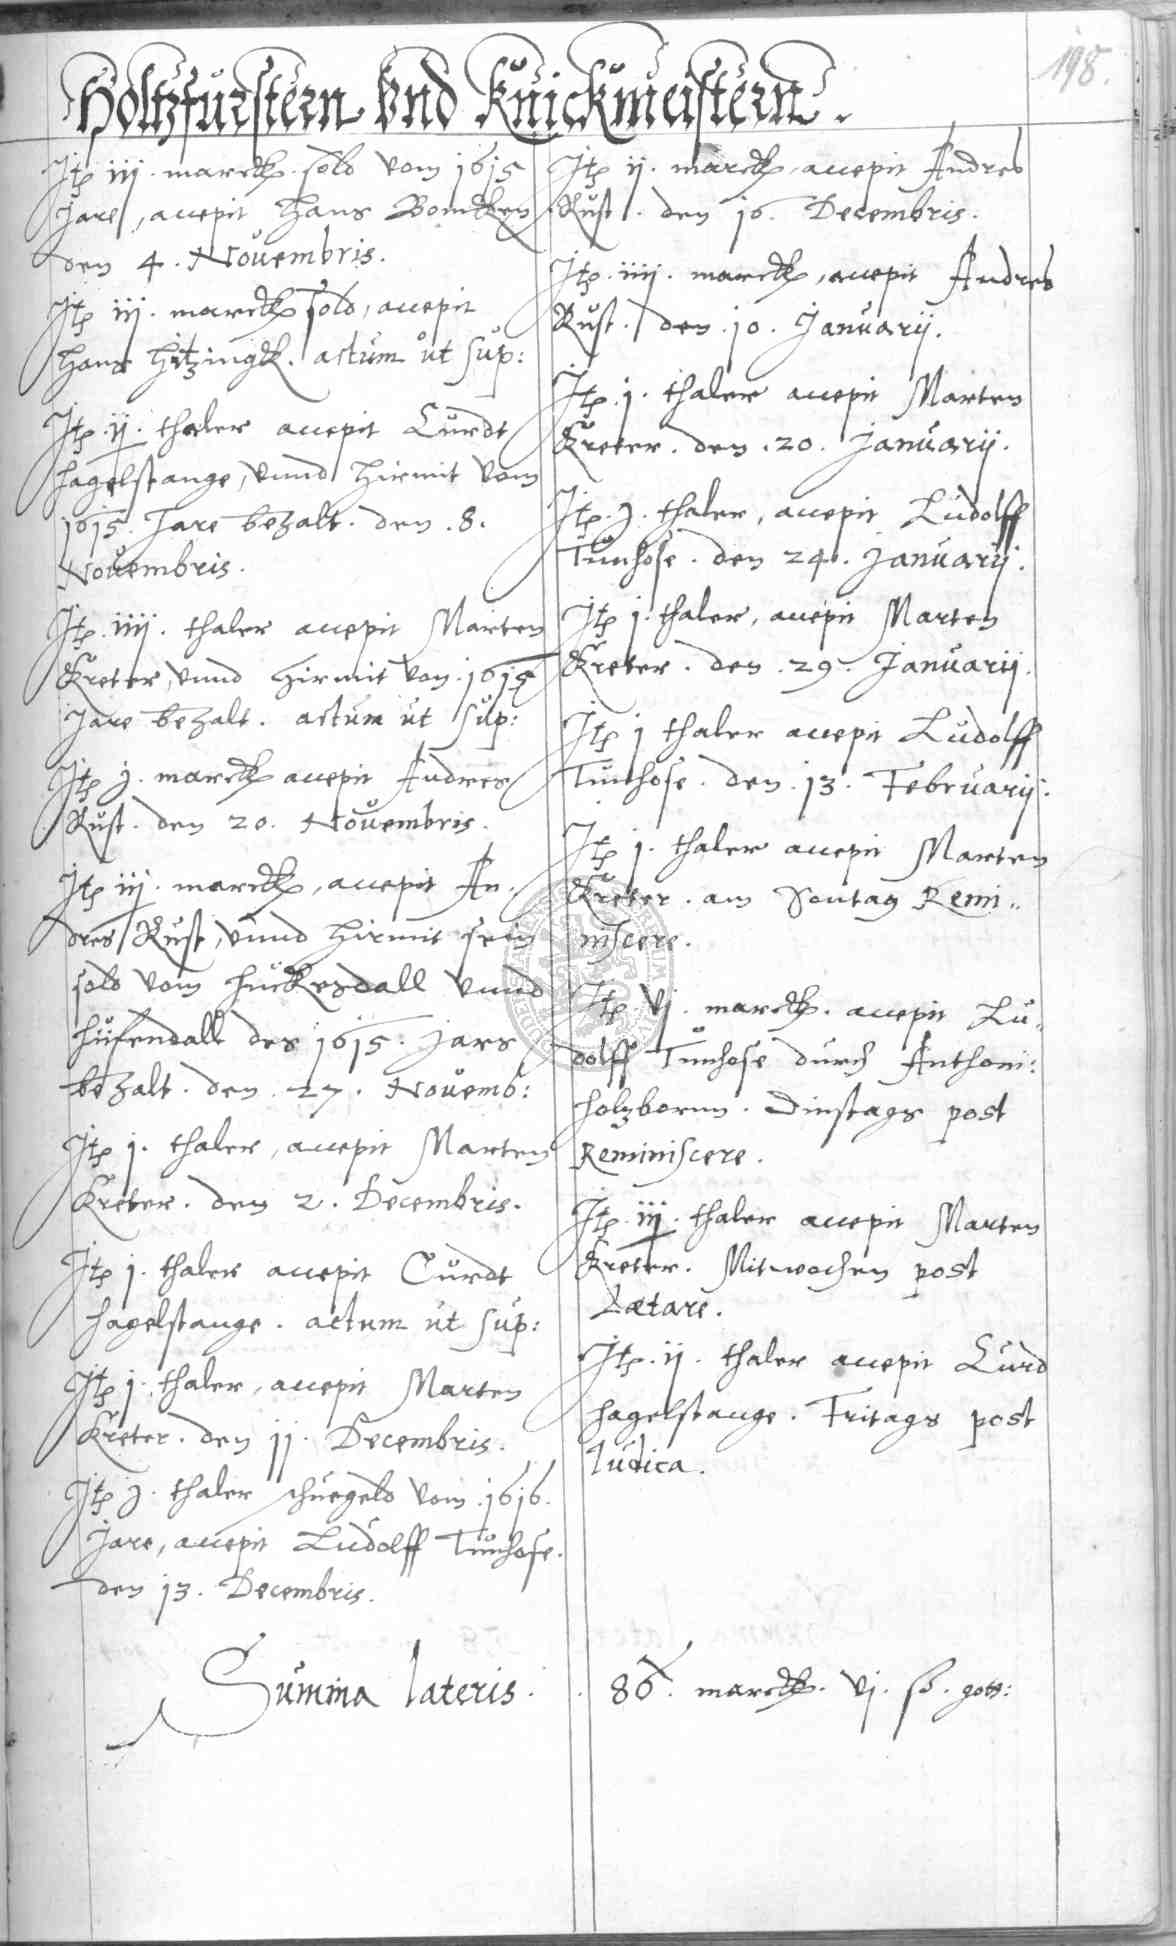 198.
Holtzfürstern Vnd Knickmeistern.
Itẽ iij. marck. sold vom 1615
Jare, accepit Hans Bomcken
den 4. Nouembris.
Itẽ iij. marck sold, accepit
Hans Hitzingk. actum ut sup:
Itẽ ij. thaler accepit Curdt
Hagelstange, vnnd hirmit vom
1615. Jare bezalt. den .8.
Nouembris.
Itẽ iiij. thaler accepit Marten
Kreter, vnnd hirmit von .1615
Jare bezalt. actum ut sup:
Itẽ j. marck accepit Andres
Rust. den 20. Nouembris.
Itẽ iij. marck, accepit An-
dres Rust, vnnd hirmit sein
sold vom Huckesdall vnnd
Hüfendall des 1615. Jars
bezalt. den .27. Nouemb:
Itẽ j. thaler, accepit Marten
Kreter. den 2. Decembris.
Itẽ j. thaler accepit Curdt
Hagelstange. actum ut sup:
Itẽ j. thaler, accepit Marten
Kreter. den 11. Decembris.
Itẽ j. thaler schuegeld vom .1616.
Jare, accepit Ludolff Tunhose.
den 13. Decembris.
Itẽ ij. marck, accepit Andres
Rust. den 16. Decembris.
Itẽ iiij. marck, accepit Andres
Rust. den .10. Januarij.
Itẽ j. thaler accepit Marten
Kreter. den .20. Januarij.
Itẽ j. thaler, accepit Ludolff
Tunhose. den 24. Januarij.
Itẽ j. thaler, accepit Marten
Kreter. den .29. Januarij.
Itẽ j thaler accepit Ludolff
Tunhose. den .13. Februarij:
Itẽ j. thaler accepit Marten
Kreter. am Sontag Remi-
niscere.
Itẽ vj. marck. accepit Lu-
dolff Tunhose durch Anthoni:
Holzbornn. Dinstags post
Reminiscere.
Itẽ iij. thaler accepit Marten
Kreter. Mitwochen post
Lætare.
Itẽ ij. thaler accepit Curd
Hagelstange. Fritags post
Iudica.
Summa lateris. 86. marck. vj. ß. gott: